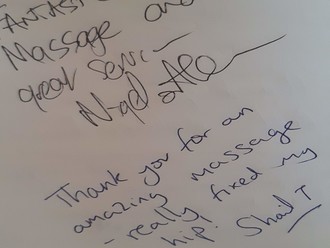 FANTASTI
Massage and
great Servi
Thank you for an
amazing massage
- really fixed my
hip!